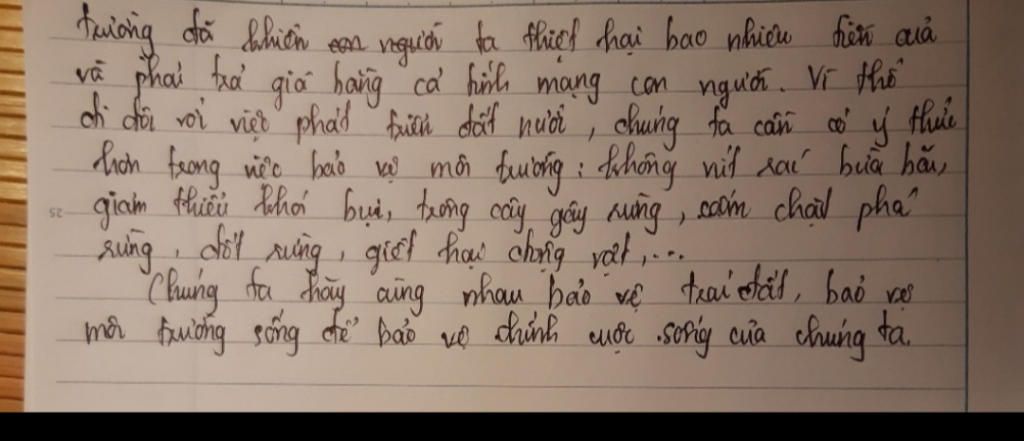 trường đã khiến con người ta thiệt hại bao nhiêu tiền của
và phải trả giá bằng cả tính mạng con người. Vì thế
đi đôi với việc phát triển đất nước, chúng ta cần có ý thức
hơn trong việc bảo vệ môi trường: không vứt rác bừa bãi,
giảm thiểu khói bụi, trồng cây gây rừng, cấm chặt phá
rừng, đốt rừng, giết hại động vật,...
Chúng ta hãy cùng nhau bảo vệ trái đất, bảo vệ
môi trường sống để bảo vệ chính cuộc sống của chúng ta.
25